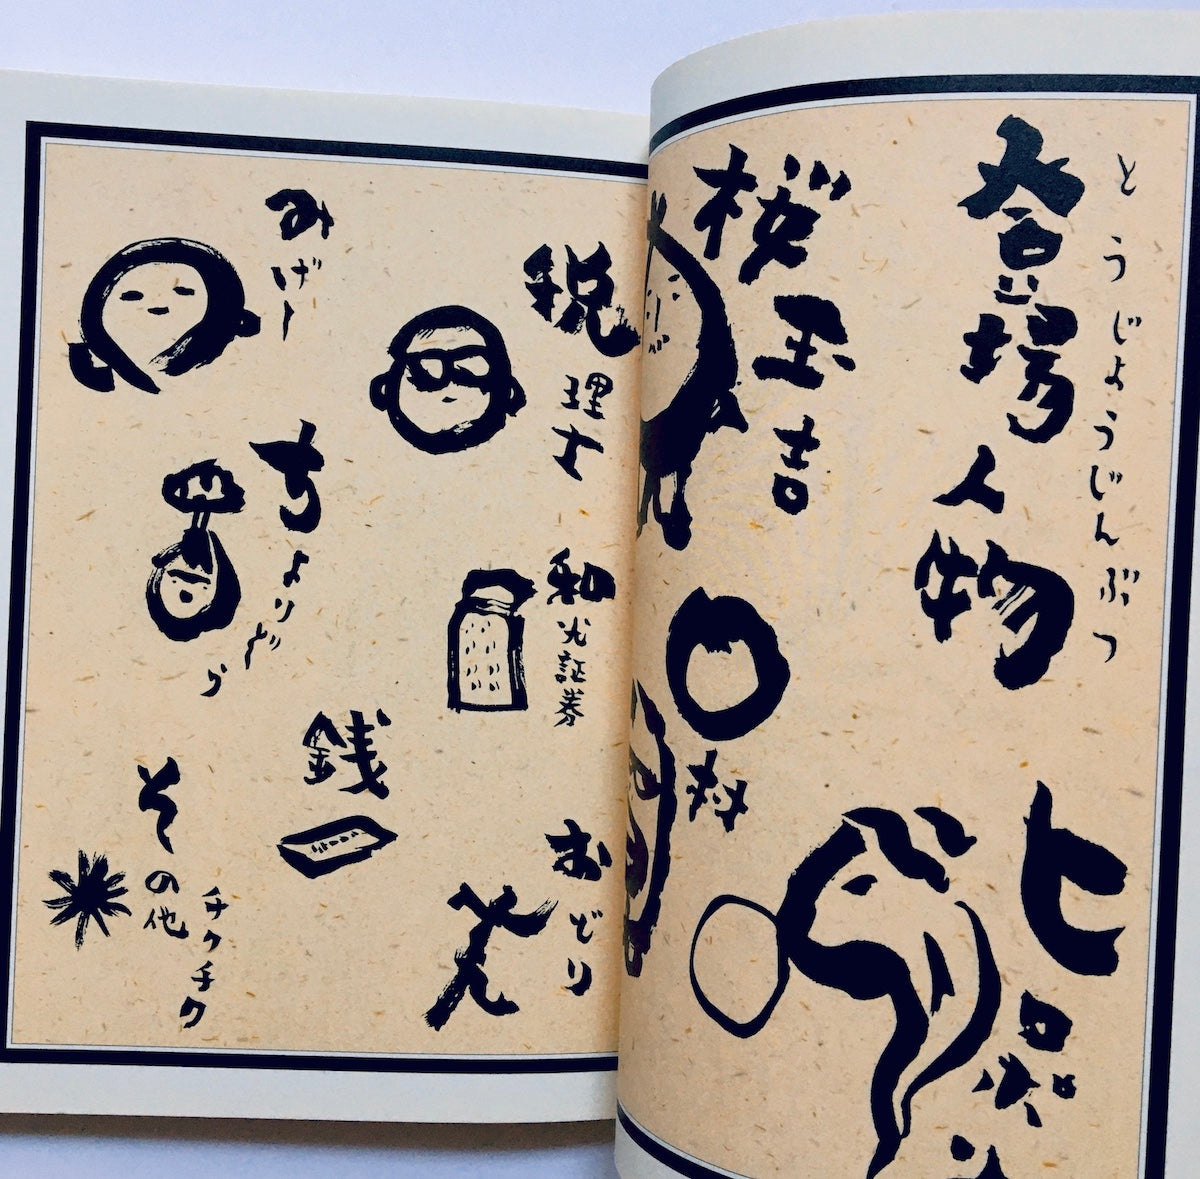 とうじょうじんぶつ
登場人物
ヒロポン
桜玉吉
〇村
税理士
和光証券
おどり
みげー
ちょりどら
銭
その他
チクチク